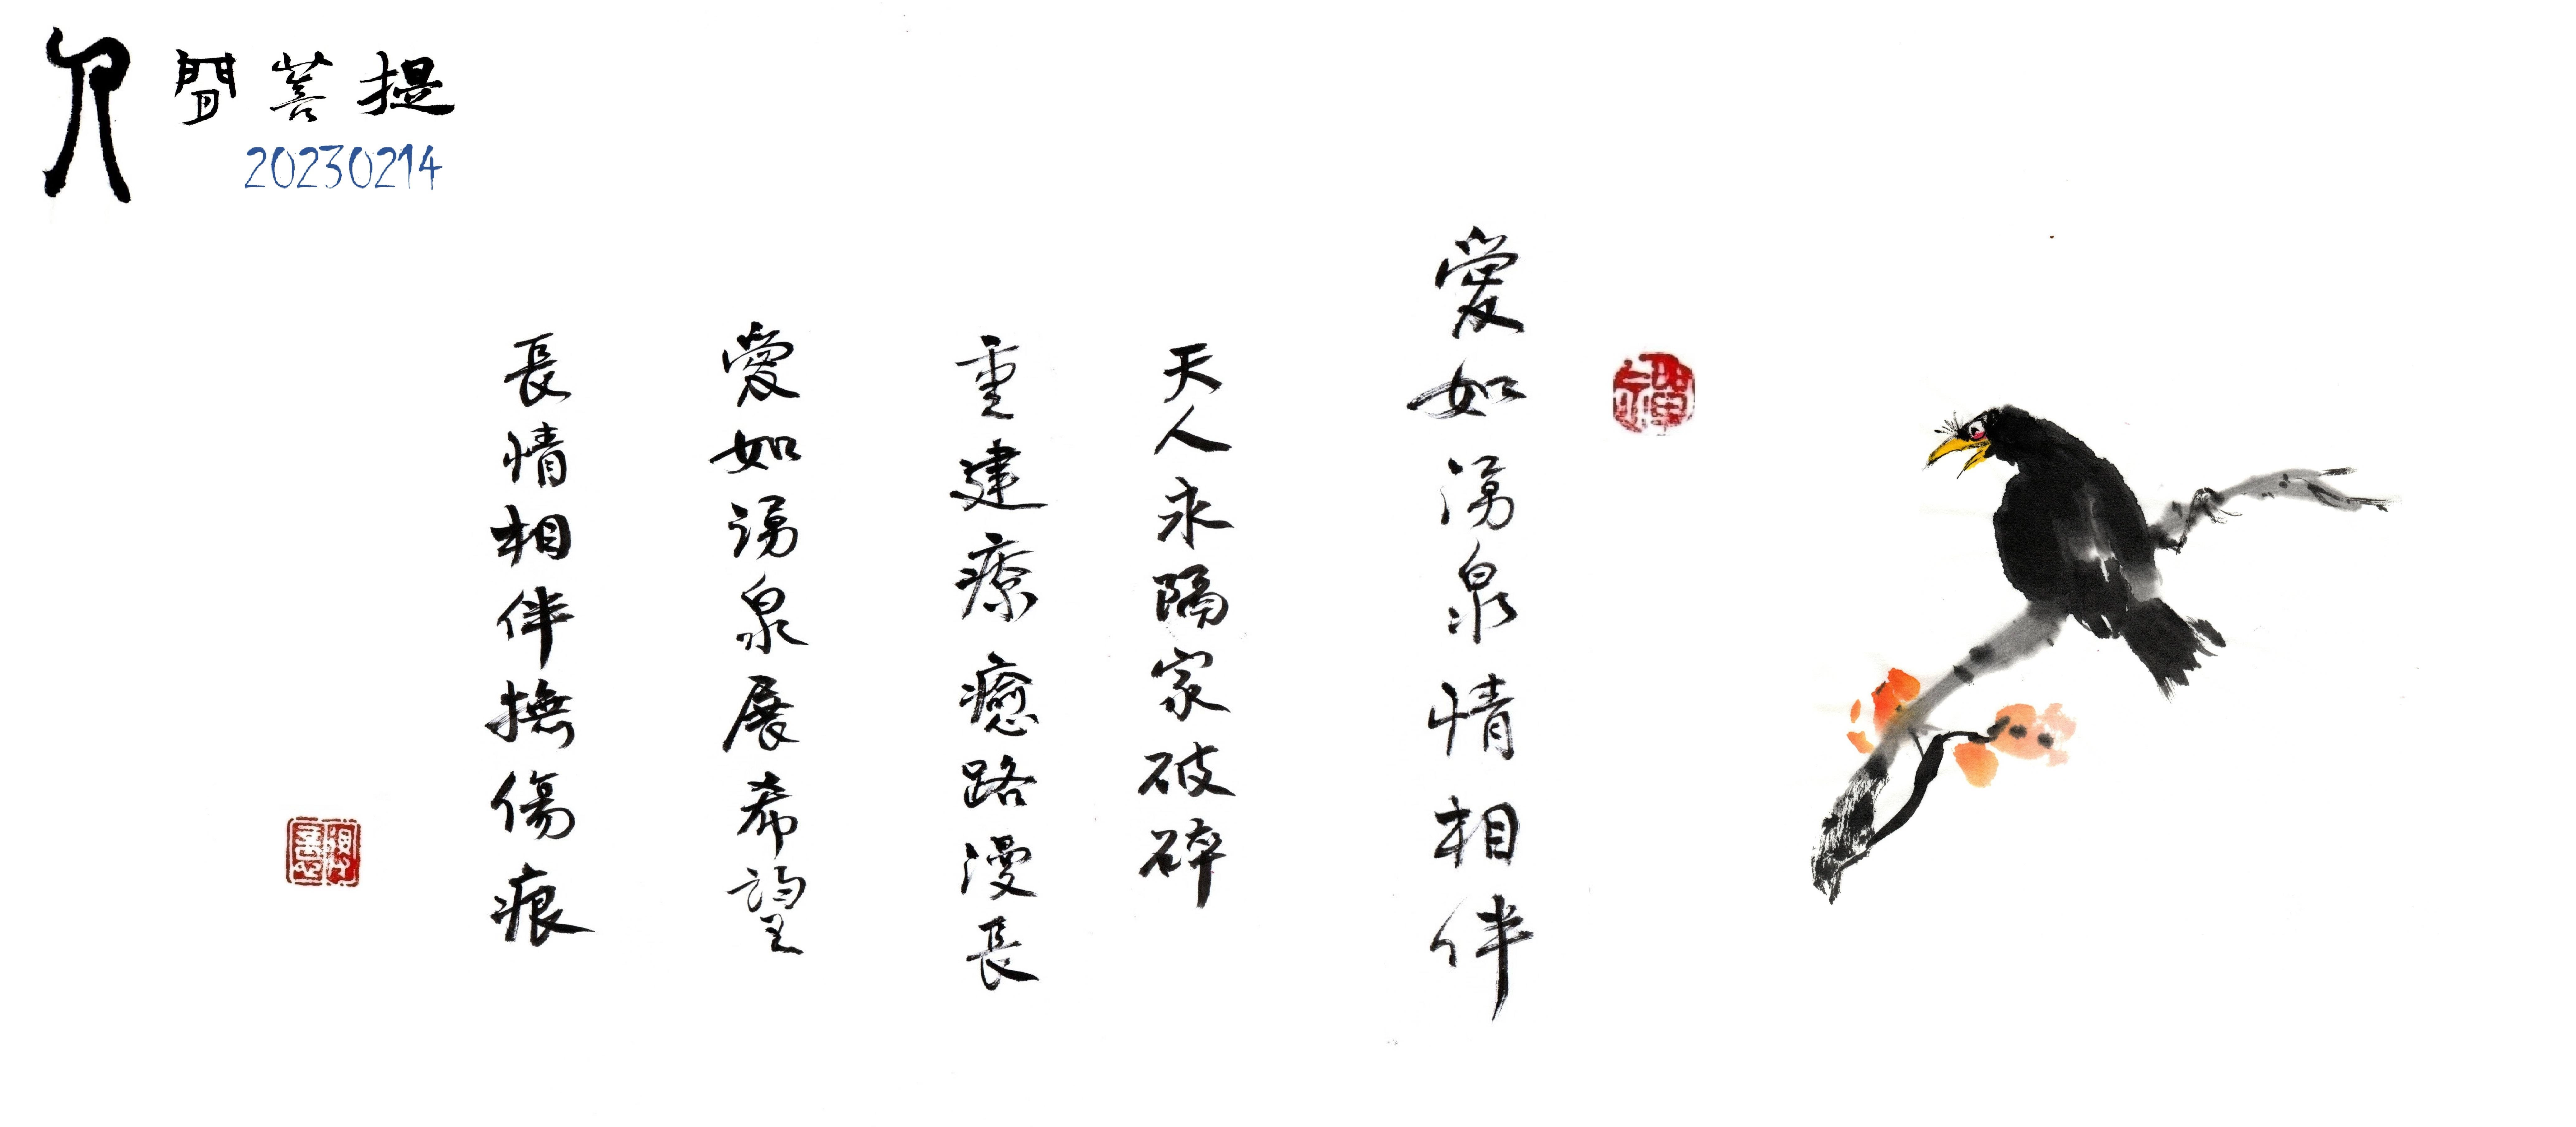 人間菩提
20230214
愛如湧泉情相伴
天人永隔家破碎
重建療癒路漫長
愛如湧泉展希望
長情相伴撫傷痕